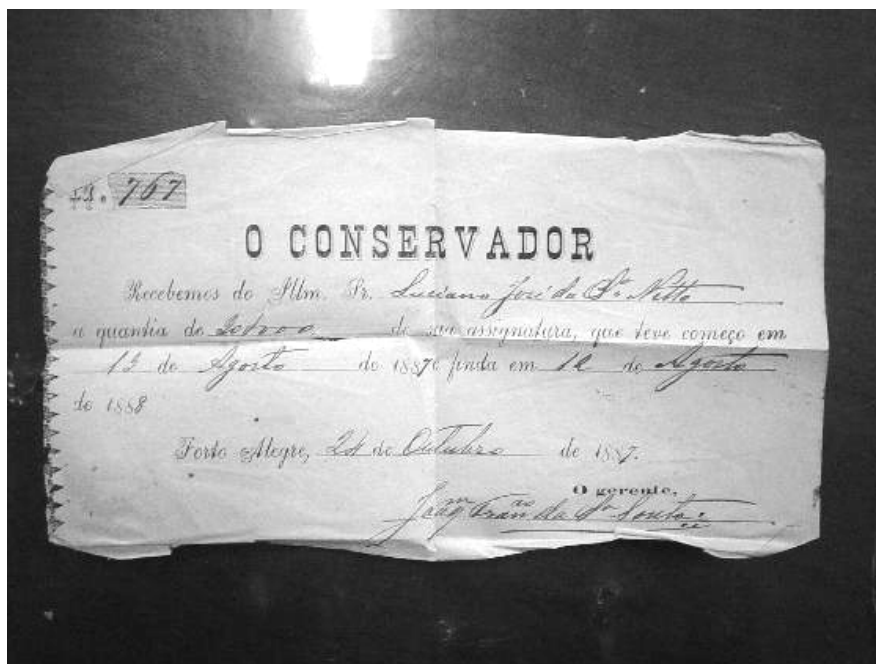 N. 767
O CONSERVADOR
Recebemos do Illm. Sr. Luciano José da Sª Netto
a quantia de 20$000 de sua assignatura, que teve começo em
13 de Agosto de 1887 e finda em 12 de Agosto
de 1888
Porto Alegre, 24 de Outubro de 1887.
O gerente,
Joaqm Franco da Sª